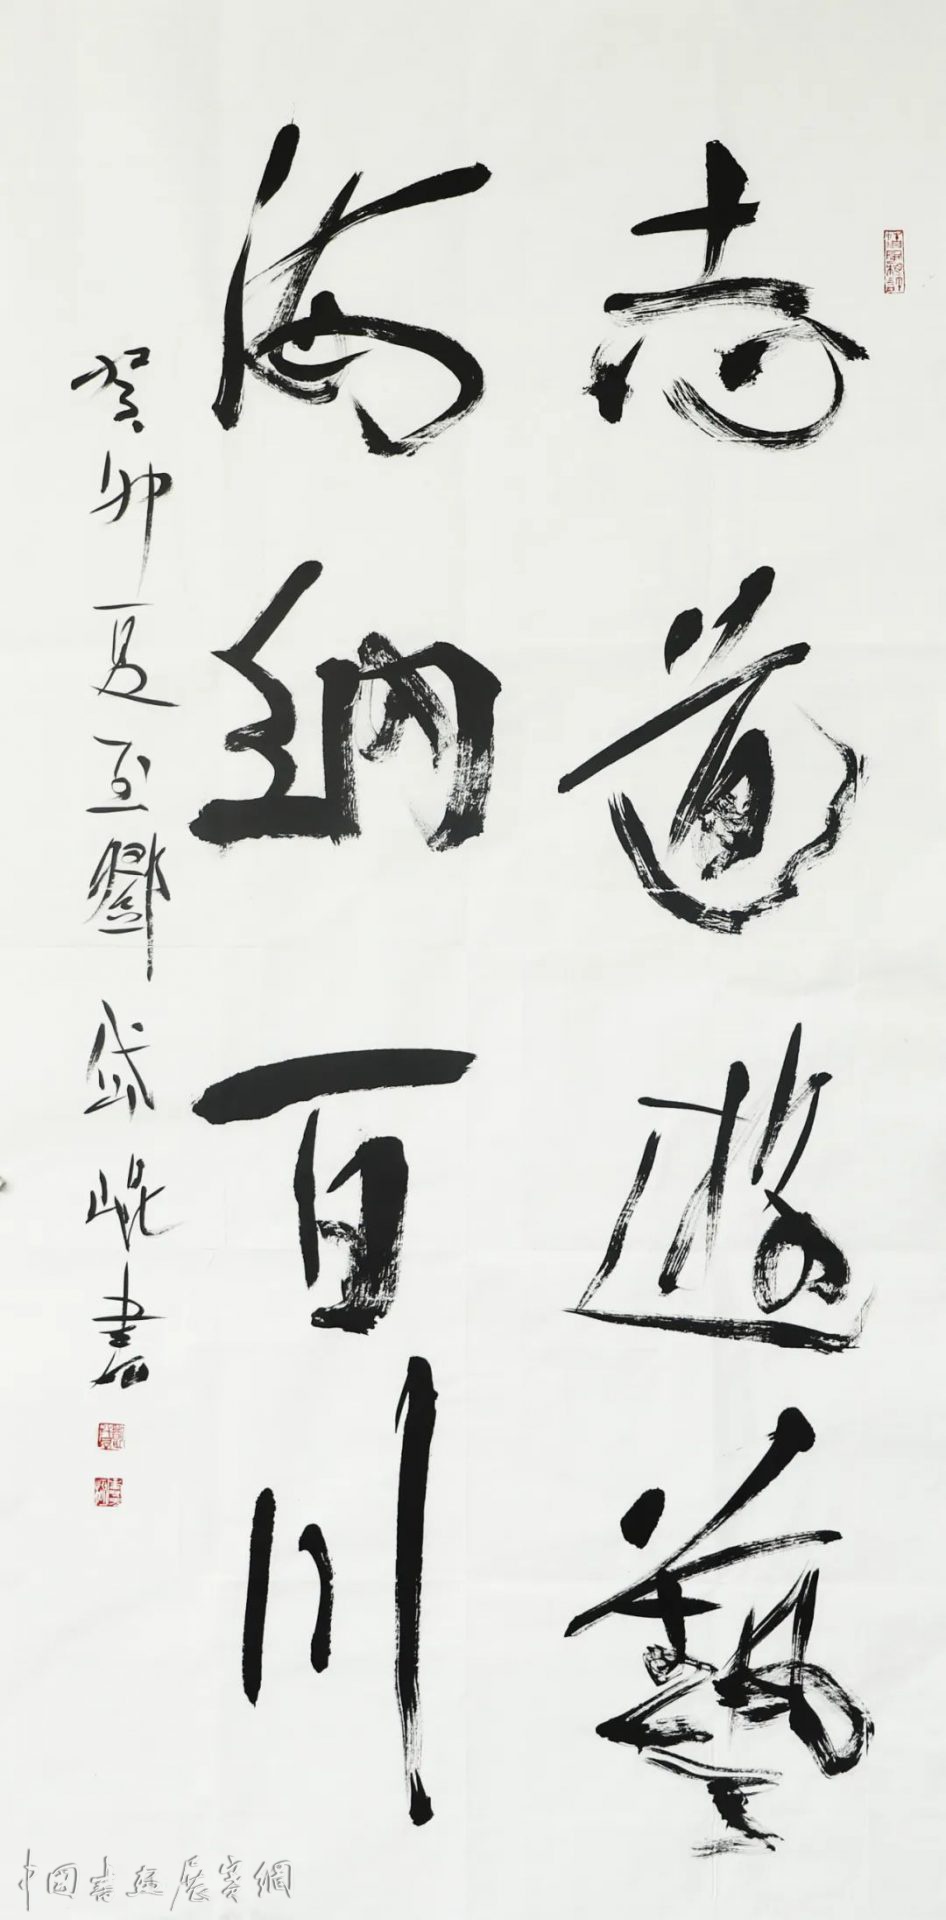 志道遊藝
海納百川
癸卯夏至鄧岱崐書
中國書畫展賽網